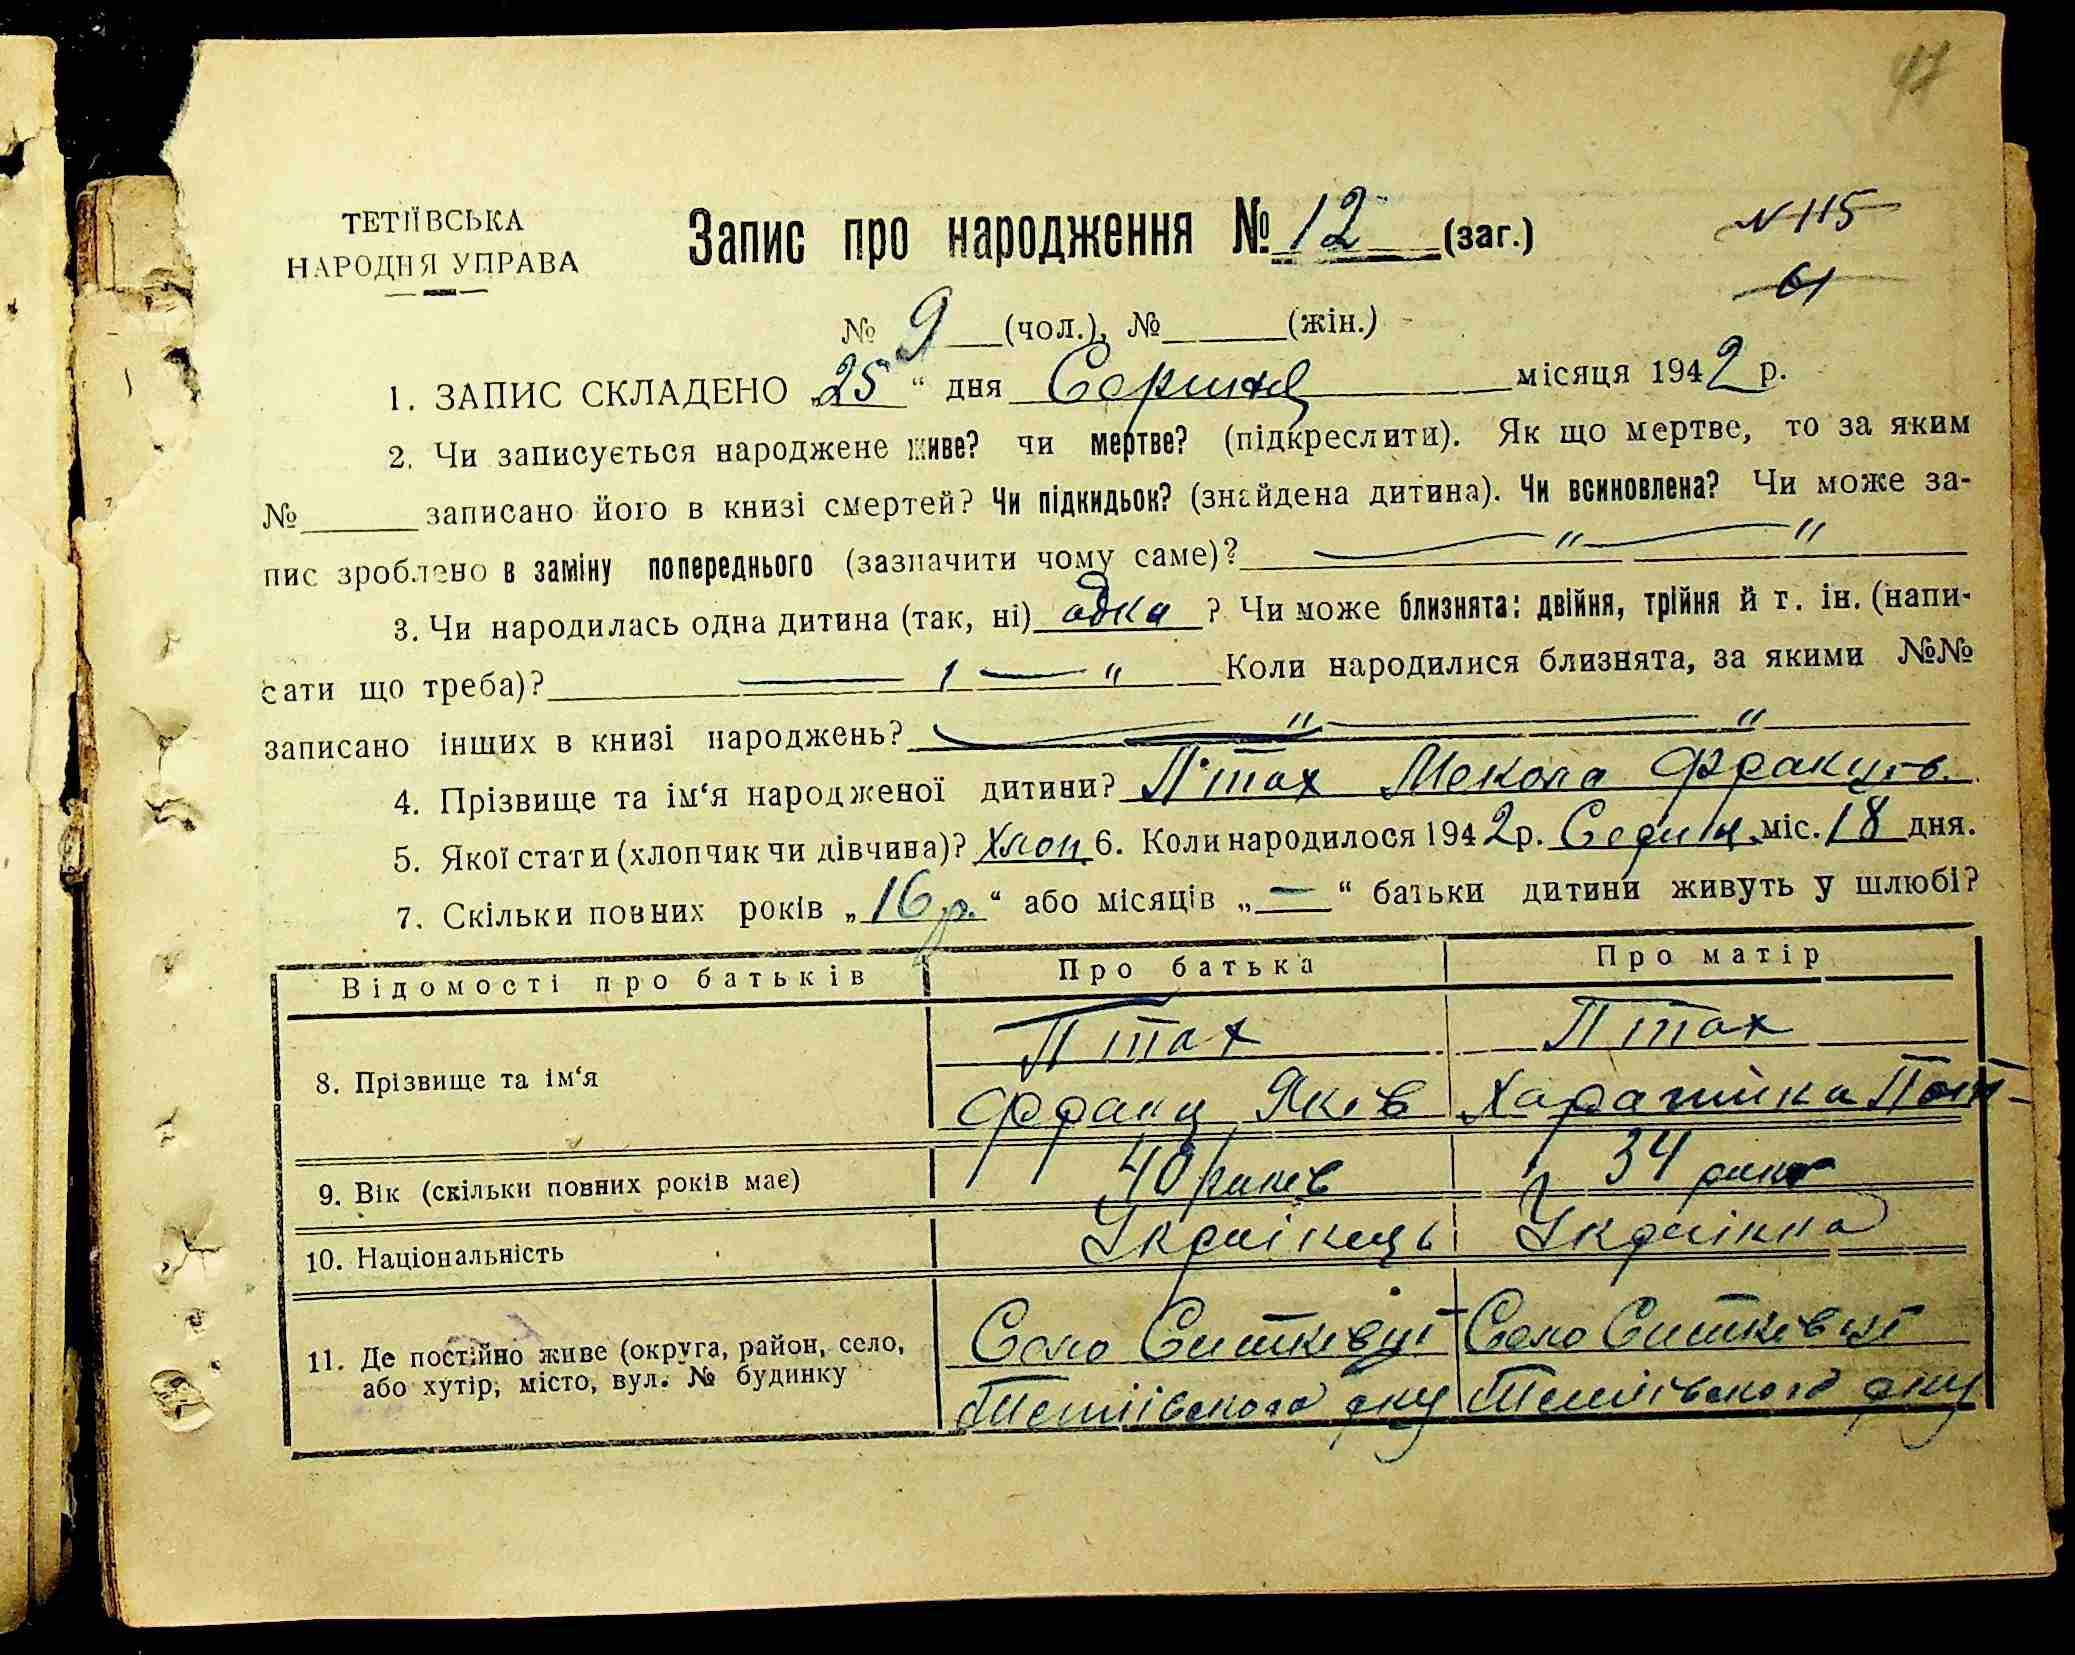 47
ТЕТІЇВСЬКА
НАРОДНЯ УПРАВА
Запис про народження № 12 (заг.)
N 115
61
№ 9 (чол.), № (жін.)
1. ЗАПИС СКЛАДЕНО „25“ дня Серпня місяця 1942 р.
2. Чи записується народжене живе? чи мертве? (підкреслити). Як що мертве, то за яким
№ записано його в книзі смертей? Чи підкидьок? (знайдена дитина). Чи всиновлена? Чи може за-
пис зроблено в заміну попереднього (зазначити чому саме)? — " — "
3. Чи народилась одна дитина (так, ні) одна ? Чи може близнята: двійня, трійня й т. ін. (напи-
сати що треба)? — 1 — " Коли народилися близнята, за якими №№
записано інших в книзі народжень? — " — "
4. Прізвище та ім‘я народженої дитини? Птах Микола
5. Якої стати (хлопчик чи дівчина)? Хлоп 6. Коли народилося 1942 р. Серпн. міс. 18 дня.
7. Скільки повних років „16 р.“ або місяців „—“ батьки дитини живуть у шлюбі?
Відомості про батьків Про батька Про матір
8. Прізвище та ім‘я Птах Птах
Франц Яків Харатина
9. Вік (скільки повних років має) 40 років 34 роки
10. Національність Українець Українка
11. Де постійно живе (округа, район, село, Село Ситківці Село Ситківці
або хутір, місто, вул. № будинку Тетіївського р-ну Тетіївського р-ну